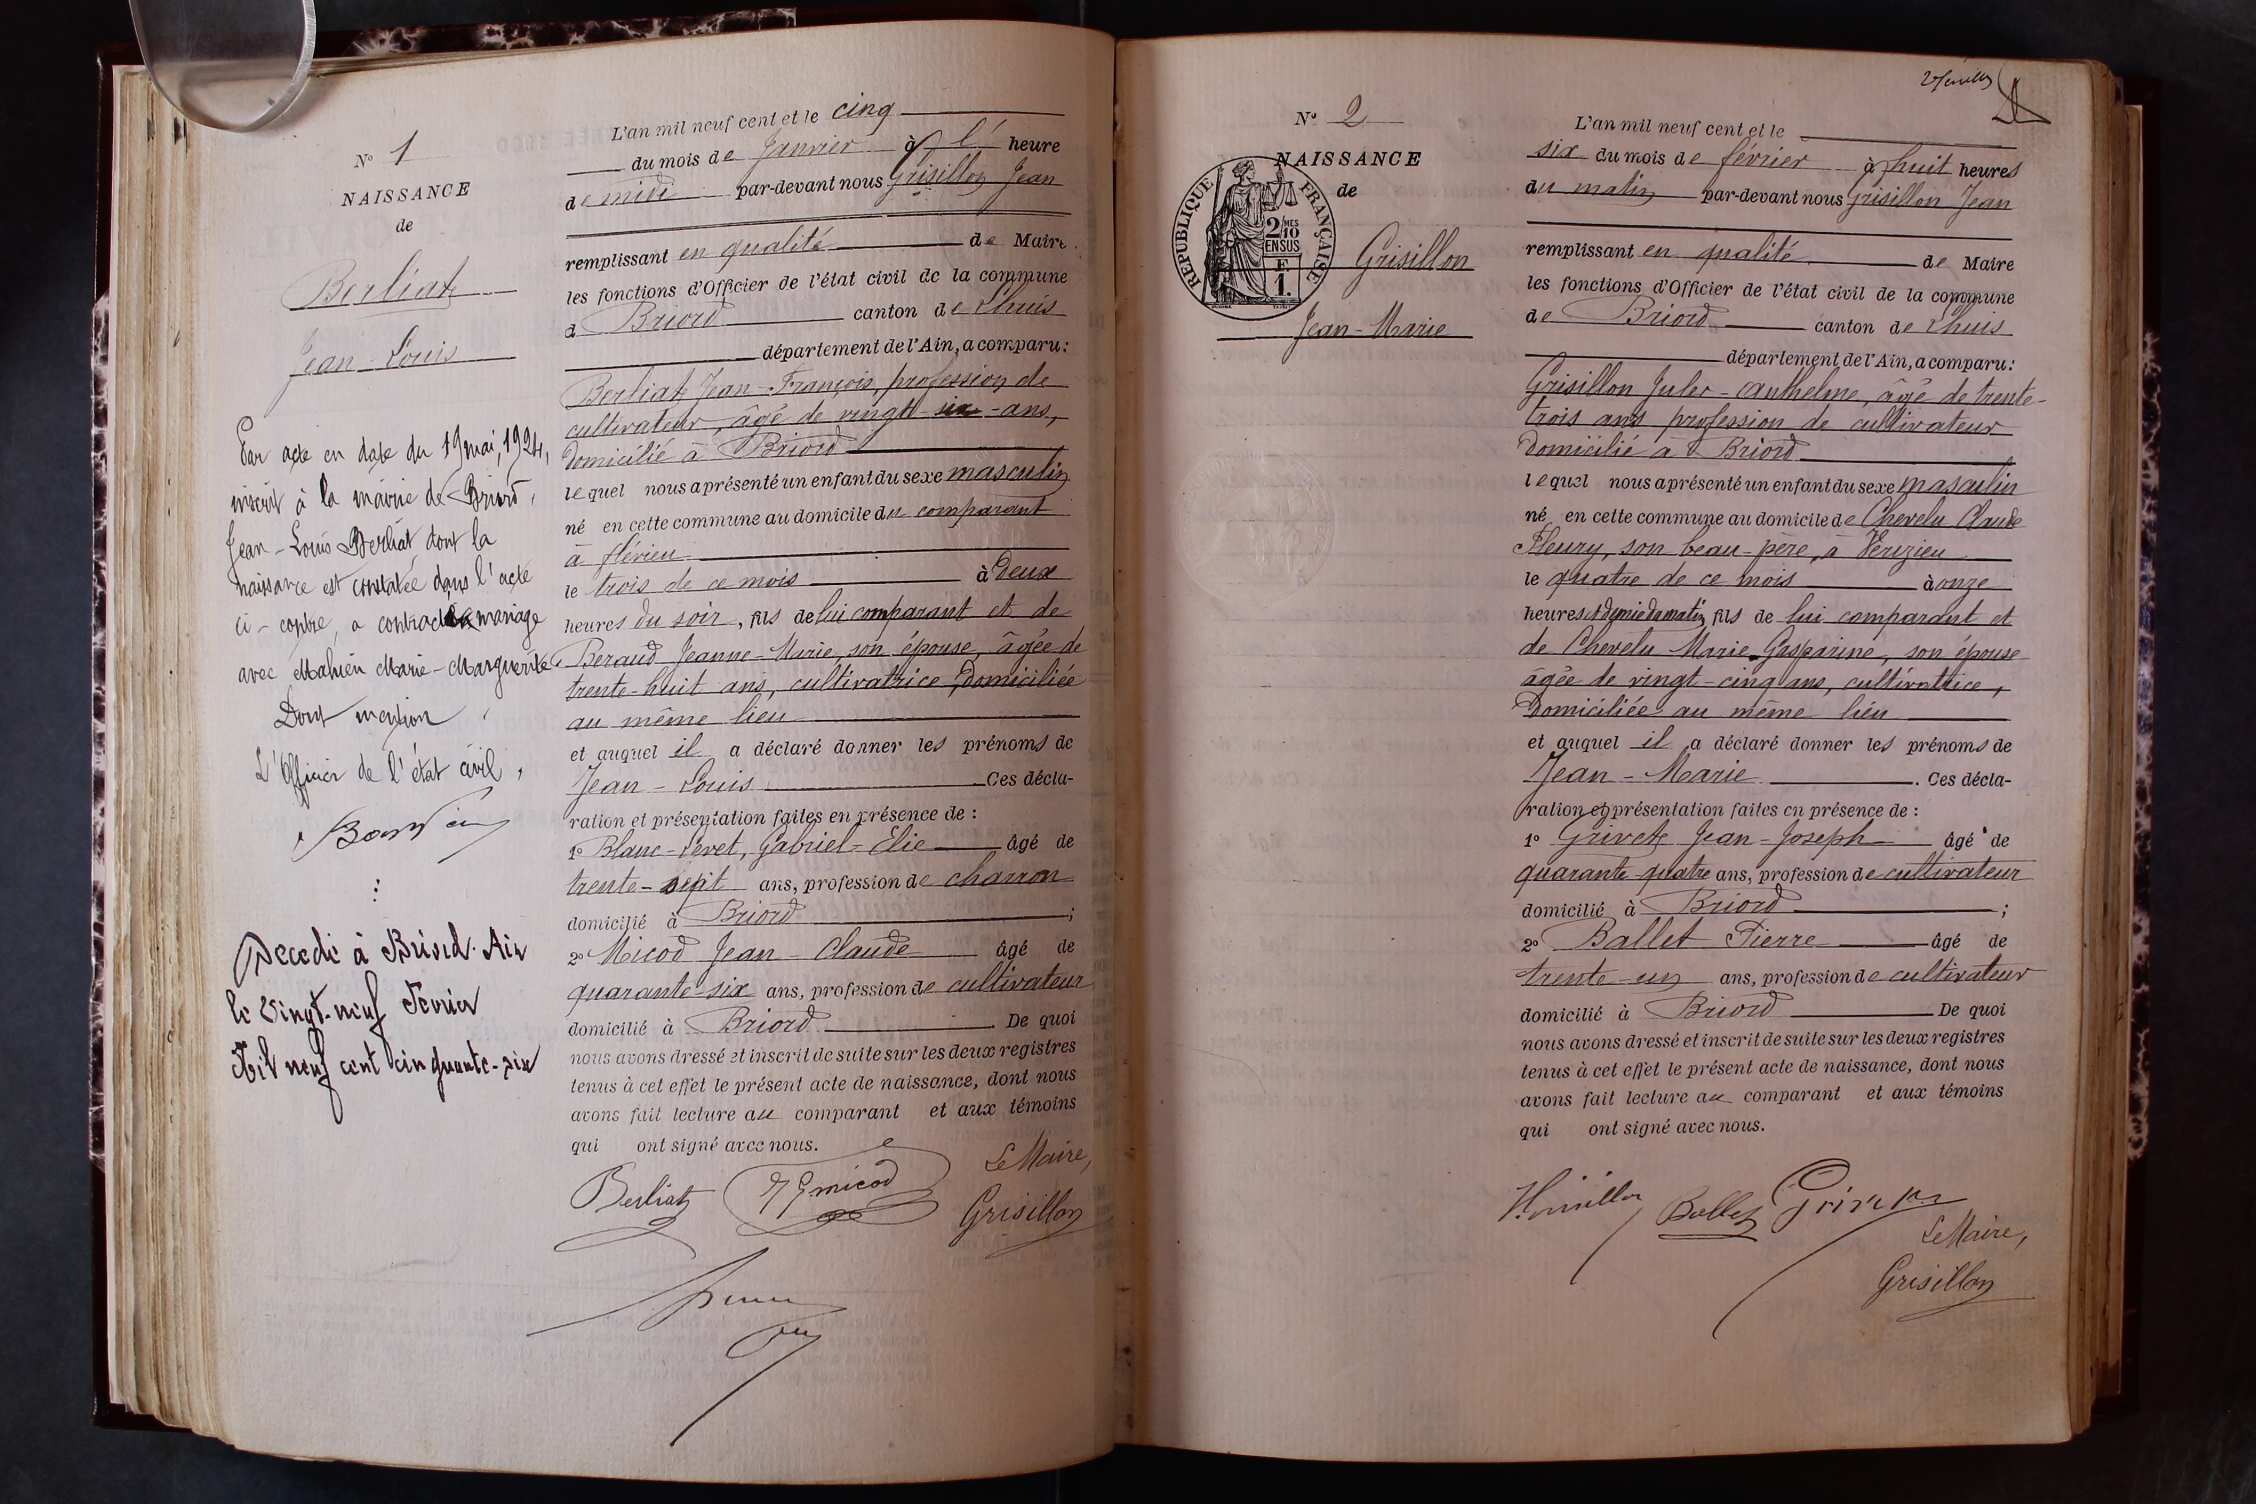 N° 1
NAISSANCE
de
Berliat
Jean-Louis
Par acte en date du 19 mai, 1924,
inscrit à la mairie de Briord,
Jean-Louis Berliat dont la
naissance est constatée dans l'acte
ci-contre, a contracté mariage
avec Mahieu Marie-Marguerite.
Dont mention,
L'Officier de l'état civil,
Décédé à Briord. Ain
le Vingt-neuf Février
Mil neuf cent cinquante-six
L'an mil neuf cent et le cinq
du mois de Janvier à l' heure
de midi par-devant nous Grisillon Jean
remplissant en qualité de Maire
les fonctions d'Officier de l'état civil de la commune
d Briord canton de Lhuis
département de l'Ain, a comparu:
Berliat Jean-François, profession de
cultivateur, âgé de vingt-six-ans,
domicilié à Briord
lequel nous a présenté un enfant du sexe masculin
né en cette commune au domicile du comparant
à flévieu
le trois de ce mois à deux
heures du soir, fils de lui comparant et de
Beraud Jeanne-Marie, son épouse, âgée de
trente-huit ans, cultivatrice, domiciliée
au même lieu
et auquel il a déclaré donner les prénoms de
Jean-Louis Ces décla-
ration et présentation faites en présence de :
1° Blanc-Levet, Gabriel-Elie âgé de
trente-sept ans, profession de charron
domicilié à Briord ;
2° Micod Jean-Claude âgé de
quarante-six ans, profession de cultivateur
domicilié à Briord. De quoi
nous avons dressé et inscrit de suite sur les deux registres
tenus à cet effet le présent acte de naissance, dont nous
avons fait lecture au comparant et aux témoins
qui ont signé avec nous.
Le Maire,
Berliat micod Grisillon
2e feuillet
N° 2
NAISSANCE
de
REPUBLIQUE FRANÇAISE
2/10 MES
EN SUS
F.
1.
Grisillon
Jean-Marie
L'an mil neuf cent et le
six du mois de février à huit heures
du matin par-devant nous Grisillon Jean
remplissant en qualité de Maire
les fonctions d'Officier de l'état civil de la commune
de Briord canton de Lhuis
département de l'Ain, a comparu:
Grisillon Jules-Anthelme, âgé de trente-
trois ans profession de cultivateur
domicilié à Briord
lequel nous a présenté un enfant du sexe masculin
né en cette commune au domicile de Chevelu Claude
Fleury, son beau-père, à Vérizieu
le quatre de ce mois à onze
heures et demie du matin, fils de lui comparant et
de Chevelu Marie Gasparine, son épouse
âgée de vingt-cinq ans, cultivatrice,
domiciliée au même lieu
et auquel il a déclaré donner les prénoms de
Jean-Marie. Ces décla-
ration et présentation faites en présence de :
1° Grivet Jean-Joseph âgé de
quarante-quatre ans, profession de cultivateur
domicilié à Briord ;
2° Ballet Pierre âgé de
trente-un ans, profession de cultivateur
domicilié à Briord De quoi
nous avons dressé et inscrit de suite sur les deux registres
tenus à cet effet le présent acte de naissance, dont nous
avons fait lecture au comparant et aux témoins
qui ont signé avec nous.
Ballet
Le Maire,
Grisillon